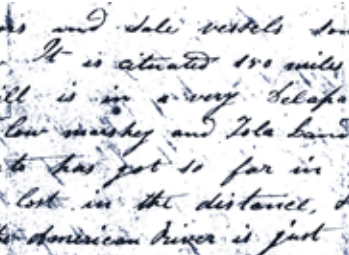 and sale vessels
It is cituated 150 miles
ill is in a very Delapa
low marshy and Tola Land
to has got so far in
lost in the distance,
American River is just